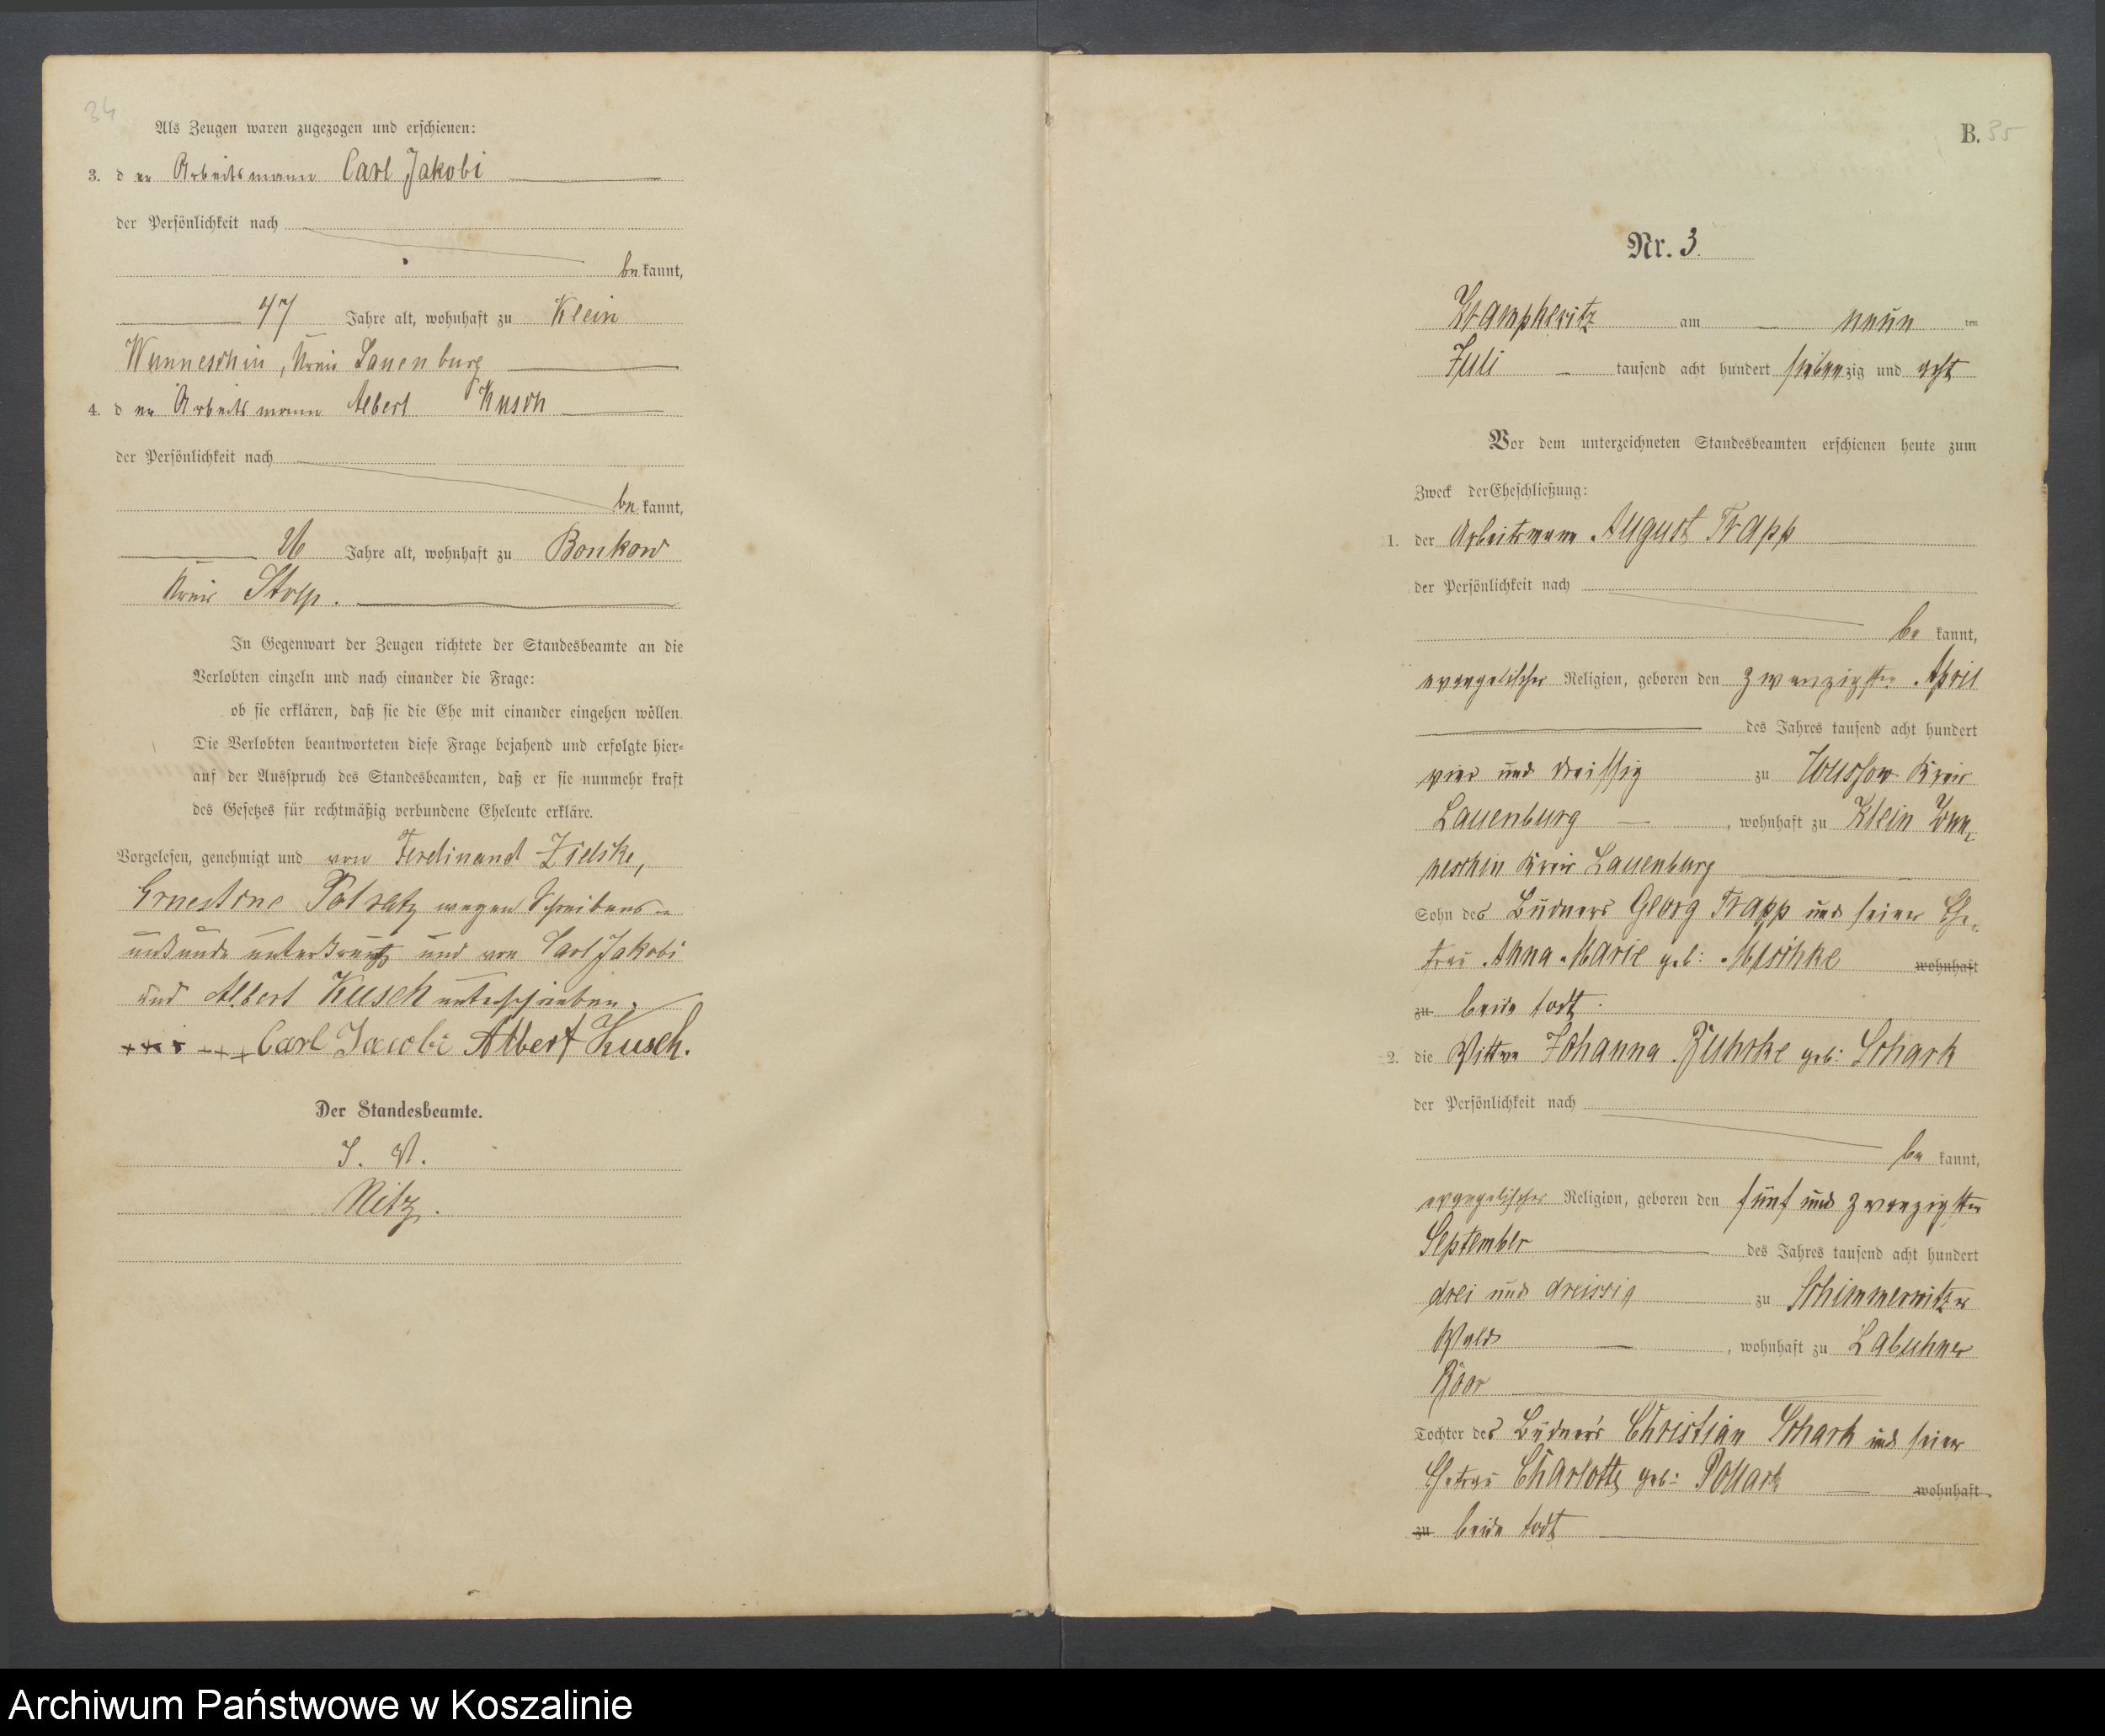 34
Als Zeugen waren zugezogen und erschienen:
3. der Arbeitsmann Carl Jakobi
der Persönlichkeit nach
bekannt,
47 Jahre alt, wohnhaft zu Klein
Wunneschin, Kreis Lauenburg
4. der Arbeitsmann Albert Kusch
der Persönlichkeit nach
bekannt,
26 Jahre alt, wohnhaft zu Bonkow
Kreis Stolp.
In Gegenwart der Zeugen richtete der Standesbeamte an die
Verlobten einzeln und nach einander die Frage:
ob sie erklären, daß sie die Ehe mit einander eingehen wollen.
Die Verlobten beantworteten diese Frage bejahend und erfolgte hier-
auf der Ausspruch des Standesbeamten, daß er sie nunmehr kraft
des Gesetzes für rechtmäßig verbundene Eheleute erkläre.
Vorgelesen, genehmigt und von Ferdinand Zielske,
Ernestine wegen Schreibens-
unkunde unterkreuzt und von Carl Jakobi
und Albert Kusch unterschrieben.
+++ +++ Carl Jacobi Albert Kusch.
Der Standesbeamte.
I. V.
Nitz.
B. 35
Nr. 3.
am neun ten
Juli tausend acht hundert siebenzig und acht
Vor dem unterzeichneten Standesbeamten erschienen heute zum
Zweck der Eheschließung:
1. der Arbeitsmann August Trapp
der Persönlichkeit nach
bekannt,
evangelischer Religion, geboren den zwanzigsten April
des Jahres tausend acht hundert
vier und dreissig zu Wussow Kreis
Lauenburg, wohnhaft zu Klein Wun-
neschin Kreis Lauenburg
Sohn des Büdners Georg Trapp und seiner Ehe-
frau Anna Marie geb: Mischke wohnhaft
zu beide todt.
2. die Wittwe Johanna Ruhrke geb: Schark
der Persönlichkeit nach
bekannt,
evangelischer Religion, geboren den fünf und zwanzigsten
September des Jahres tausend acht hundert
drei und dreissig zu Schimmerwitzer
Wald, wohnhaft zu Labuhner
Tochter des Büdners Christian Schark und seiner
Ehefrau Charlotte geb: Pollark wohnhaft
zu beide todt
Archiwum Państwowe w Koszalinie